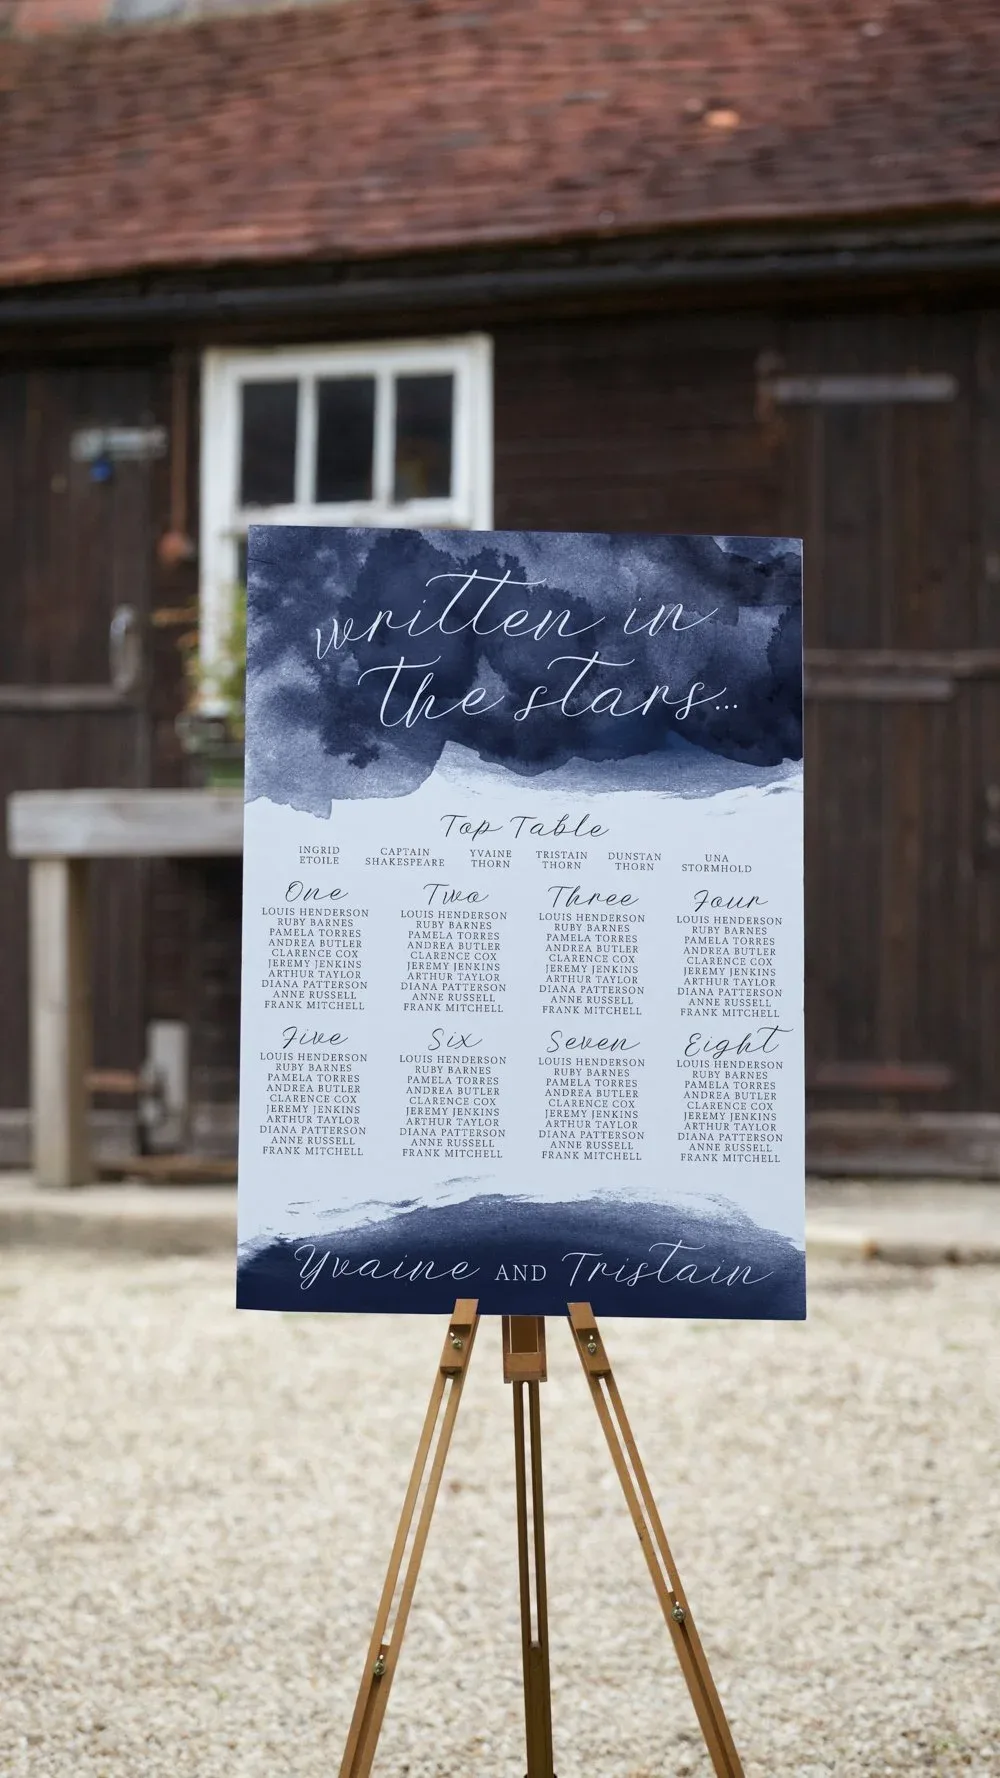 written in
the stars...
Top Table
INGRID ETOILE
CAPTAIN SHAKESPEARE
YVAINE THORN
TRISTAIN THORN
DUNSTAN THORN
UNA STORMHOLD
One
LOUIS HENDERSON
RUBY BARNES
PAMELA TORRES
ANDREA BUTLER
CLARENCE COX
JEREMY JENKINS
ARTHUR TAYLOR
DIANA PATTERSON
ANNE RUSSELL
FRANK MITCHELL
Two
LOUIS HENDERSON
RUBY BARNES
PAMELA TORRES
ANDREA BUTLER
CLARENCE COX
JEREMY JENKINS
ARTHUR TAYLOR
DIANA PATTERSON
ANNE RUSSELL
FRANK MITCHELL
Three
LOUIS HENDERSON
RUBY BARNES
PAMELA TORRES
ANDREA BUTLER
CLARENCE COX
JEREMY JENKINS
ARTHUR TAYLOR
DIANA PATTERSON
ANNE RUSSELL
FRANK MITCHELL
Four
LOUIS HENDERSON
RUBY BARNES
PAMELA TORRES
ANDREA BUTLER
CLARENCE COX
JEREMY JENKINS
ARTHUR TAYLOR
DIANA PATTERSON
ANNE RUSSELL
FRANK MITCHELL
Five
LOUIS HENDERSON
RUBY BARNES
PAMELA TORRES
ANDREA BUTLER
CLARENCE COX
JEREMY JENKINS
ARTHUR TAYLOR
DIANA PATTERSON
ANNE RUSSELL
FRANK MITCHELL
Six
LOUIS HENDERSON
RUBY BARNES
PAMELA TORRES
ANDREA BUTLER
CLARENCE COX
JEREMY JENKINS
ARTHUR TAYLOR
DIANA PATTERSON
ANNE RUSSELL
FRANK MITCHELL
Seven
LOUIS HENDERSON
RUBY BARNES
PAMELA TORRES
ANDREA BUTLER
CLARENCE COX
JEREMY JENKINS
ARTHUR TAYLOR
DIANA PATTERSON
ANNE RUSSELL
FRANK MITCHELL
Eight
LOUIS HENDERSON
RUBY BARNES
PAMELA TORRES
ANDREA BUTLER
CLARENCE COX
JEREMY JENKINS
ARTHUR TAYLOR
DIANA PATTERSON
ANNE RUSSELL
FRANK MITCHELL
Yvaine AND Tristain